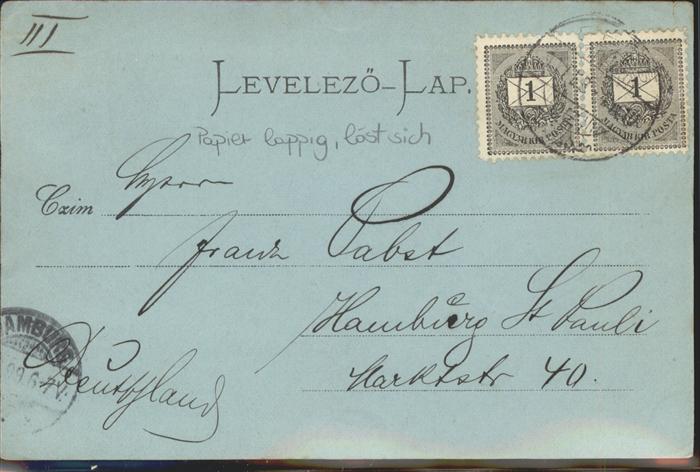 III
LEVELEZŐ-LAP.
1 1
MAGYAR KIR. POSTA MAGYAR KIR. POSTA
Papier lappig, löst sich
Herrn
Czim
Franz Pabst
Hamburg St Pauli
Marktstr 40.
Deutschland
HAMBURG